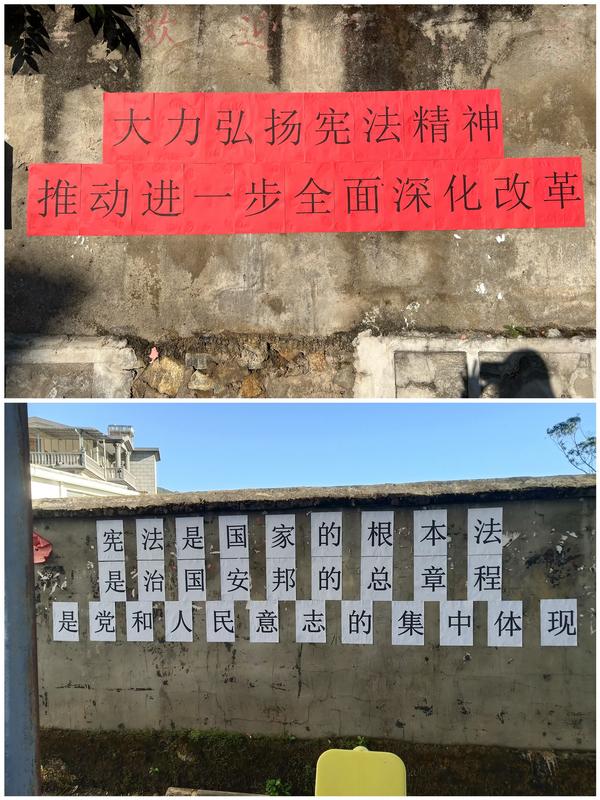 欢迎
大力弘扬宪法精神
推动进一步全面深化改革
宪法是国家的根本法
是治国安邦的总章程
是党和人民意志的集中体现